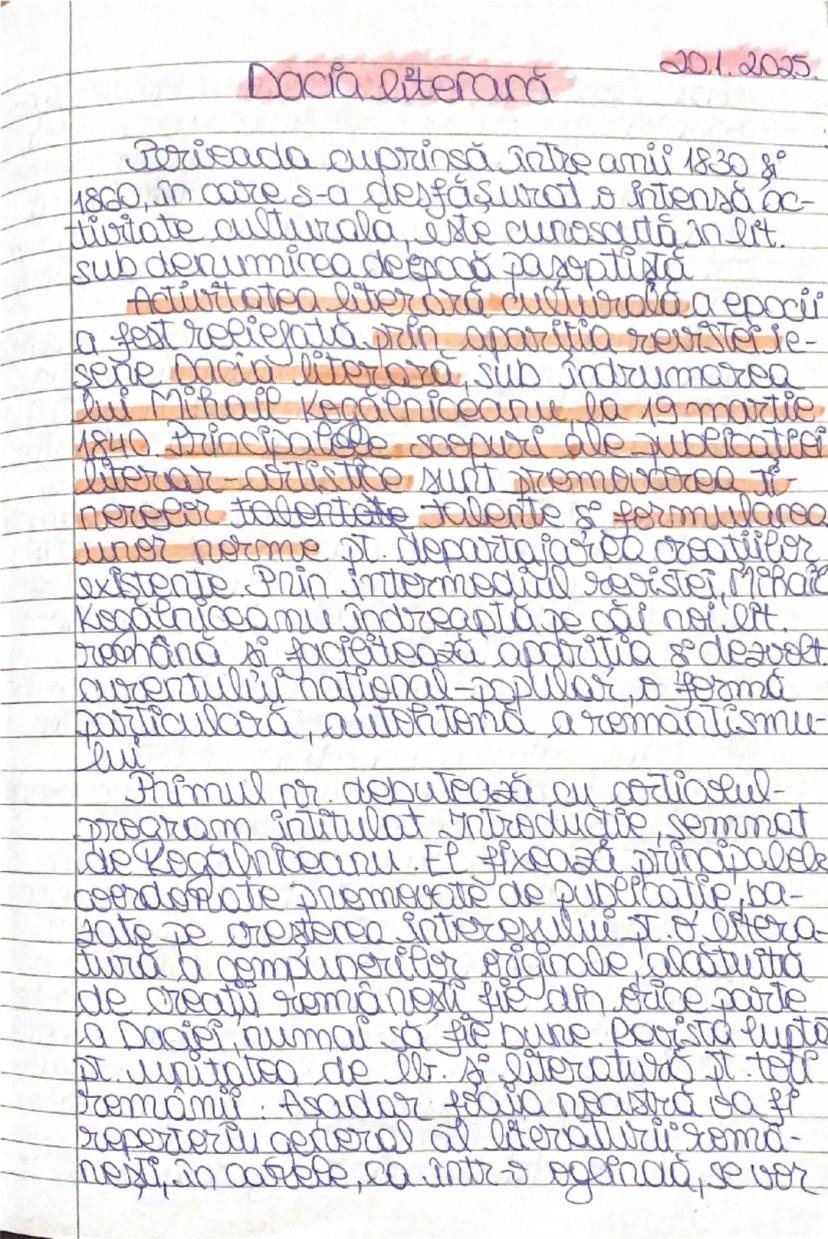 20.1.2025.
Dacia literară
Perioada cuprinsă între anii 1830 și
1860, în care s-a desfășurat o intensă ac-
tivitate culturală, este cunoscută în lit.
sub denumirea de epocă pașoptistă.
Activitatea literară culturală a epocii
a fost reliefată prin apariția revistei ie-
șene Dacia literară, sub îndrumarea
lui Mihail Kogălniceanu, la 19 martie
1840. Principalele scopuri ale publicației
literar-artistice sunt promovarea ti-
nerelor talentate talente și formularea
unor norme pt. departajarea creațiilor
existente. Prin intermediul revistei, Mihail
Kogălniceanu îndreaptă pe căi noi lit.
română și facilitează apariția și dezvolt.
curentului național-popular, o formă
particulară, autohtonă a romantismu-
lui.
Primul nr. debutează cu articolul-
program intitulat Introducție, semnat
de Kogălniceanu. El fixează principalele
coordonate promovate de publicație, ba-
zate pe creșterea interesului pt. o litera-
tură a compunerilor originale, alcătuită
de creații românești fie din orice parte
a Daciei, numai să fie bune. Revista luptă
pt. unitatea de lb. și literatură pt. toți
românii. Așadar foaia noastră va fi
repertoriu general al literaturii româ-
nești, în carele, ca într-o oglindă, se vor